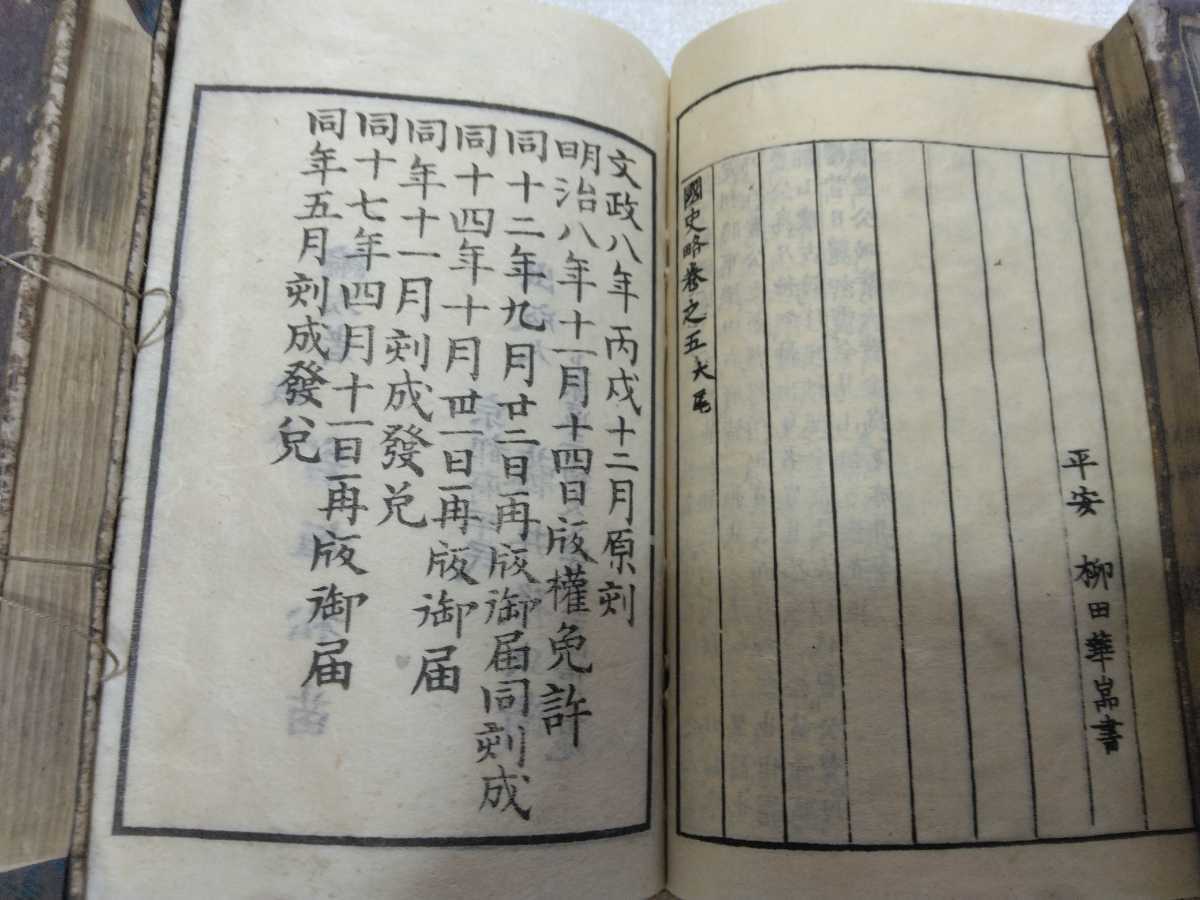 平安 柳田華嵓書
國史略卷之五大尾
文政八年丙戌十二月原刻
明治八年十一月十四日版權免許
同十二年九月廿二日再版御届同刻成
同十四年十月廿一日再版御届
同年十一月刻成發兌
同十七年四月十一日再版御届
同年五月刻成發兌